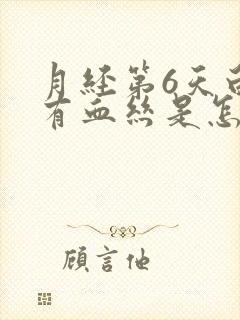 月经第6天
有血丝是怎
顾言他